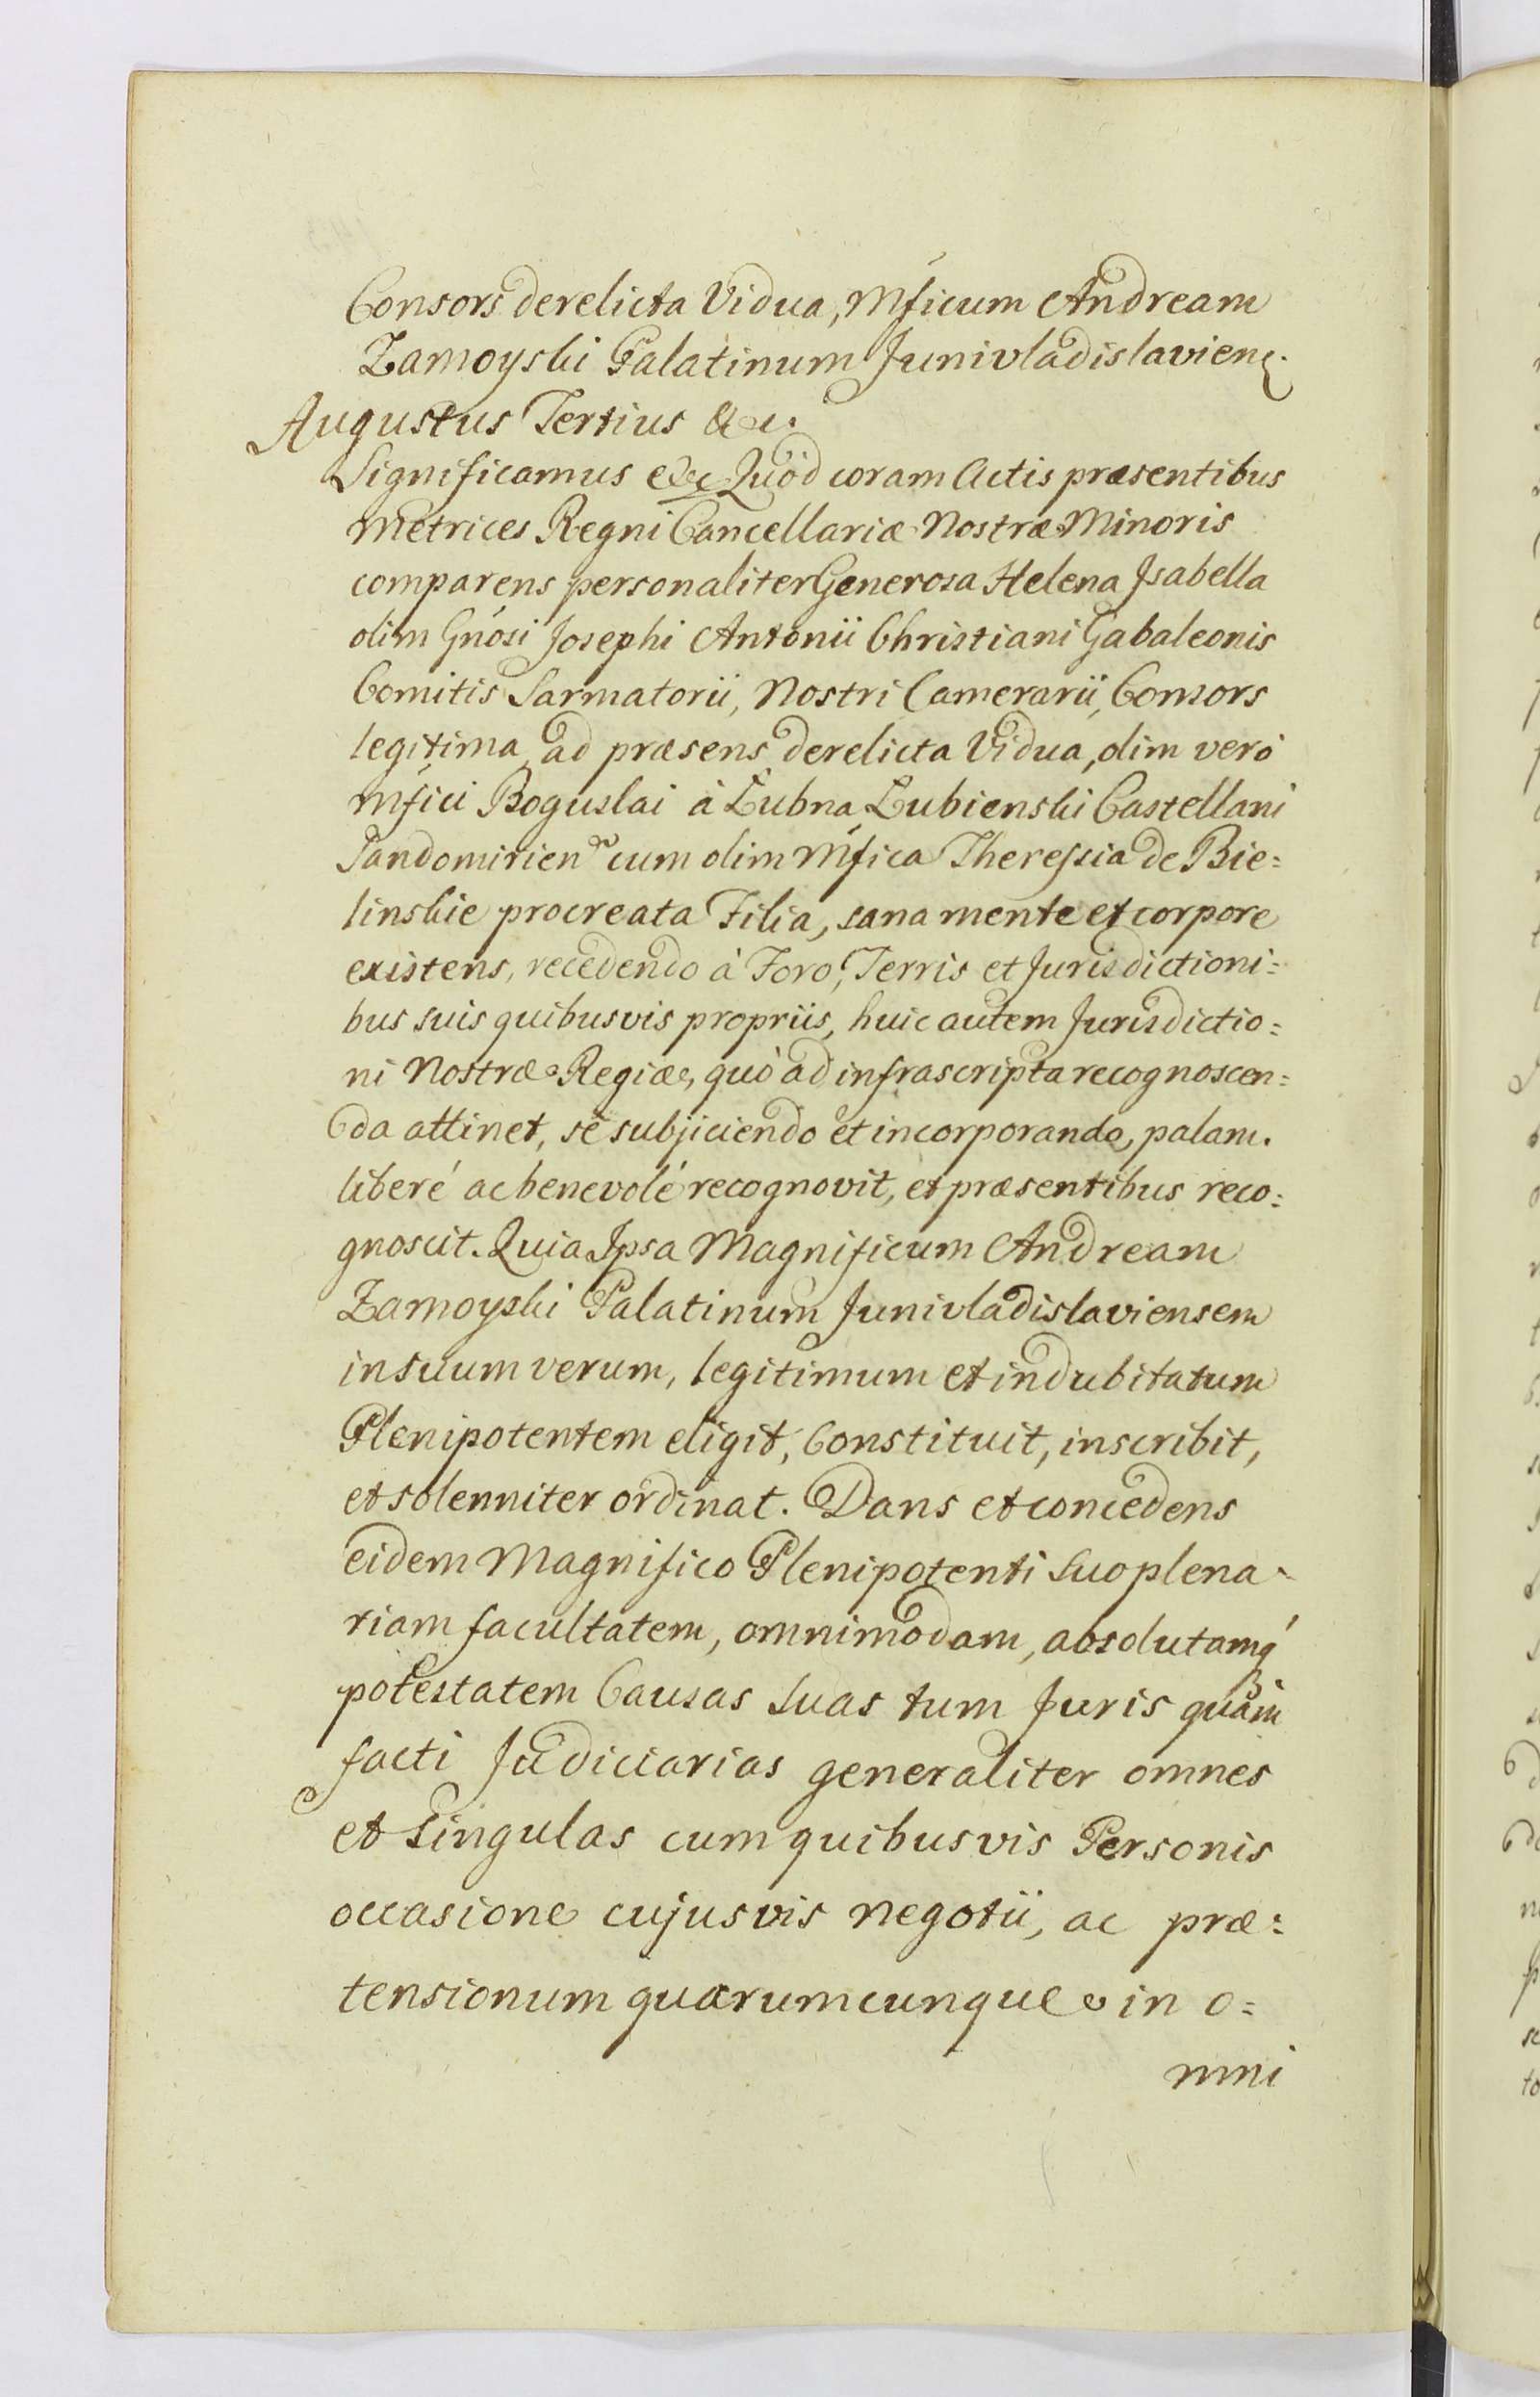 Consors derelicta Vidua, Mficum Andream
Zamoyski Palatinum Junivladislavien.
Augustus Tertius &c.
Significamus &c Quòd coram Actis præsentibus
Metrices Regni Cancellariæ Nostræ Minoris
comparens personaliter Generosa Helena Isabella
olim Gnosi Josephi Antonii Christiani Gabaleonis
Comitis Sarmatorii, Nostri Camerarii, Consors
legitima, ad præsens derelicta Vidua, olim verò
Mfici Boguslai à Łubna Łubienski Castellani
Sandomirien cum olim Mfica Theressia de Bie=
linskie procreata Filia, sana mente et corpore
existens, recedendo à Foro, Terris et Jurisdictioni=
bus suis quibusvis propriis, huic autem Jurisdictio=
ni Nostræ Regiæ, quò ad infrascripta recognoscen=
da attinet, se subjiciendo et incorporando, palam.
liberé ac benevolé recognovit, et præsentibus reco=
gnoscit. Quia Ipsa Magnificum Andream
Zamoyski Palatinum Junivladislaviensem
in suum verum, legitimum et indubitatum
Plenipotentem eligit, Constituit, inscribit,
et solenniter ordinat. Dans et concedens
eidem Magnifico Plenipotenti Suo plena-
riam facultatem, omnimodam, absolutamq́
potestatem Causas Suas tum Juris quàm
facti Judiciarias generaliter omnes
et Singulas cum quibusvis Personis
occasione cujusvis negotii, ac præ=
tensionum quarumcunque in o=
mni